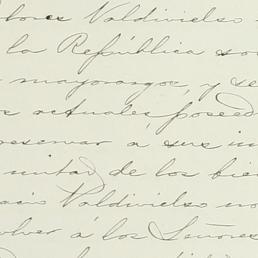 Valdivielso
la República
mayorazgos, y se
actuales poseed
reservar a sus in
mitad de los bie
Valdivielso no
olver á los Señores